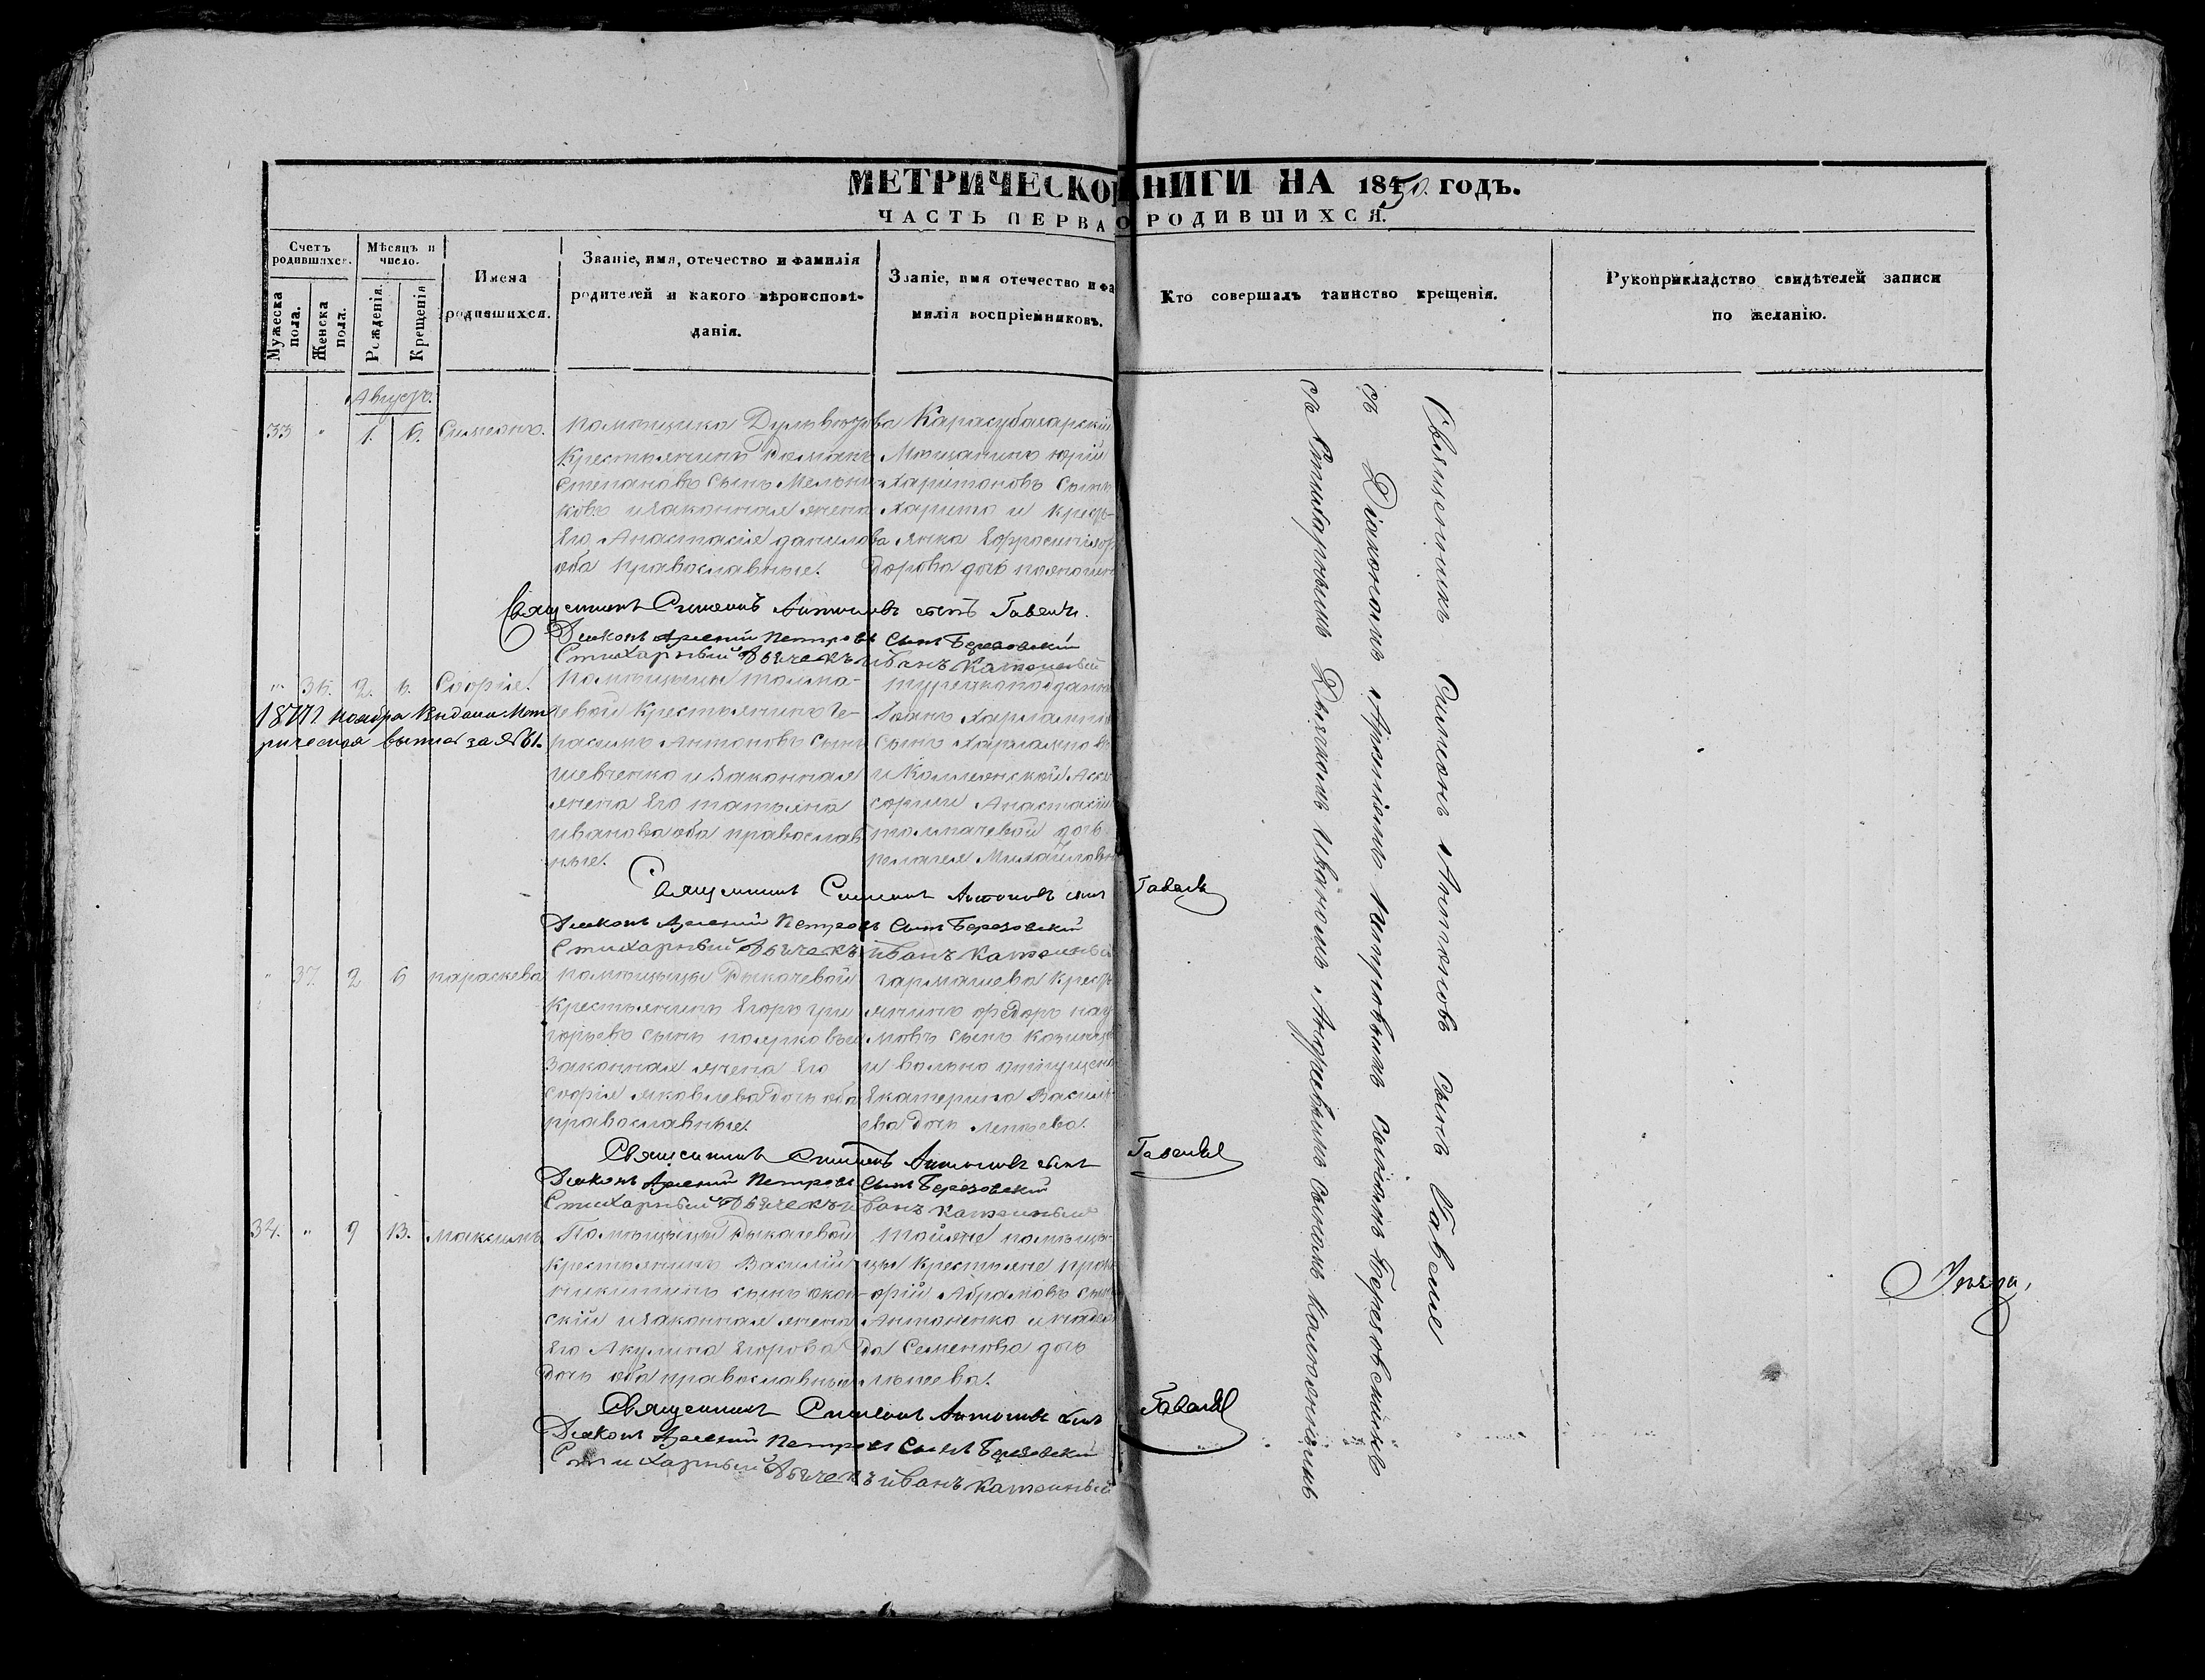 МЕТРИЧЕСКОЙ КНИГИ НА 1850. ГОДЪ.
ЧАСТЬ ПЕРВА О РОДИВШИХСЯ.
Счетъ родившихся.
Мужеска пола.
Женска пола.
Мѣсяцъ и число.
Рожденія.
Крещенія
Имена
родившихся.
Званіе, имя, отечество и фамилія
родителей и какого вѣроисповѣ-
данія.
Званіе, имя отечество и фа
милія воспріемниковъ.
Кто совершалъ таинство крещенія.
Рукоприкладство свидѣтелей записи
по желанію.
Августъ.
33 " 1. 6. Симеонъ.
помѣщика
Крестьянинъ Романъ
Степановъ сынъ Мельни
ковъ и законная жена
Его Анастасія данилова
оба православные.
Карасубазарскій
Мѣщанинъ юрій
Харитоновъ сынъ
Харито и крест-
янка Ефросинія
дорова дочь
Священникъ Симеонъ Антоновъ сынъ Гавель.
Діаконъ Арсеній Петровъ сынъ Березовскій
Стихарный Дьячекъ иванъ
" 36. 2. 6. Софія.
помѣщицы толма-
чевой крестьянинъ Ге-
расимъ Антоновъ сынъ
шевченко и законная
жена Его татьяна
иванова оба православ
ные.
турецкоподдан
Іоанъ Харлампі
сынъ
и Коллежскій Асе
сорши Анастасіи
толмачевой дочь
пелагея Михайловн
187 ноября Выдана Мет
рическая выпись за № 61.
Священникъ Симеонъ Антоновъ сынъ Гавель
Діаконъ Арсеній Петровъ сынъ Березовскій
Стихарный Дьячекъ иванъ
" 37. 2 6 параскева
помѣщицы Рыкачевой
Крестьянинъ Егоръ гри
горьевъ сынъ
Законная жена Его
софія яковлева дочь оба
православные.
гармашева крест
янинъ федоръ нау
мовъ сынъ
и вольно отпущена
Екатерина Василь
ева дочь
Священникъ Симеонъ Антоновъ сынъ Гавель
Діаконъ Арсеній Петровъ сынъ Березовскій
Стихарный Дьячекъ иванъ
34. " 9 13. максимъ
Помѣщицы Рыкачевой
крестьянинъ Василій
никитинъ сынъ
скій и законная жена
Его Акулина Егорова
дочь оба православные
Той же помѣщи
цы крестьяне про
офій Абрамовъ сын
Антоненко и наде
да Семенова дочь
Священникъ Симеонъ Антоновъ сынъ Гавель
Діаконъ Арсеній Петровъ сынъ Березовскій
Стихарный Дьячекъ иванъ
Священникъ Симеонъ Антоновъ сынъ Гавель
съ Діакономъ Арсеніемъ Петровымъ сыномъ Березовскимъ
съ Стихарнымъ Дьячкомъ Иваномъ Андреевымъ сыномъ